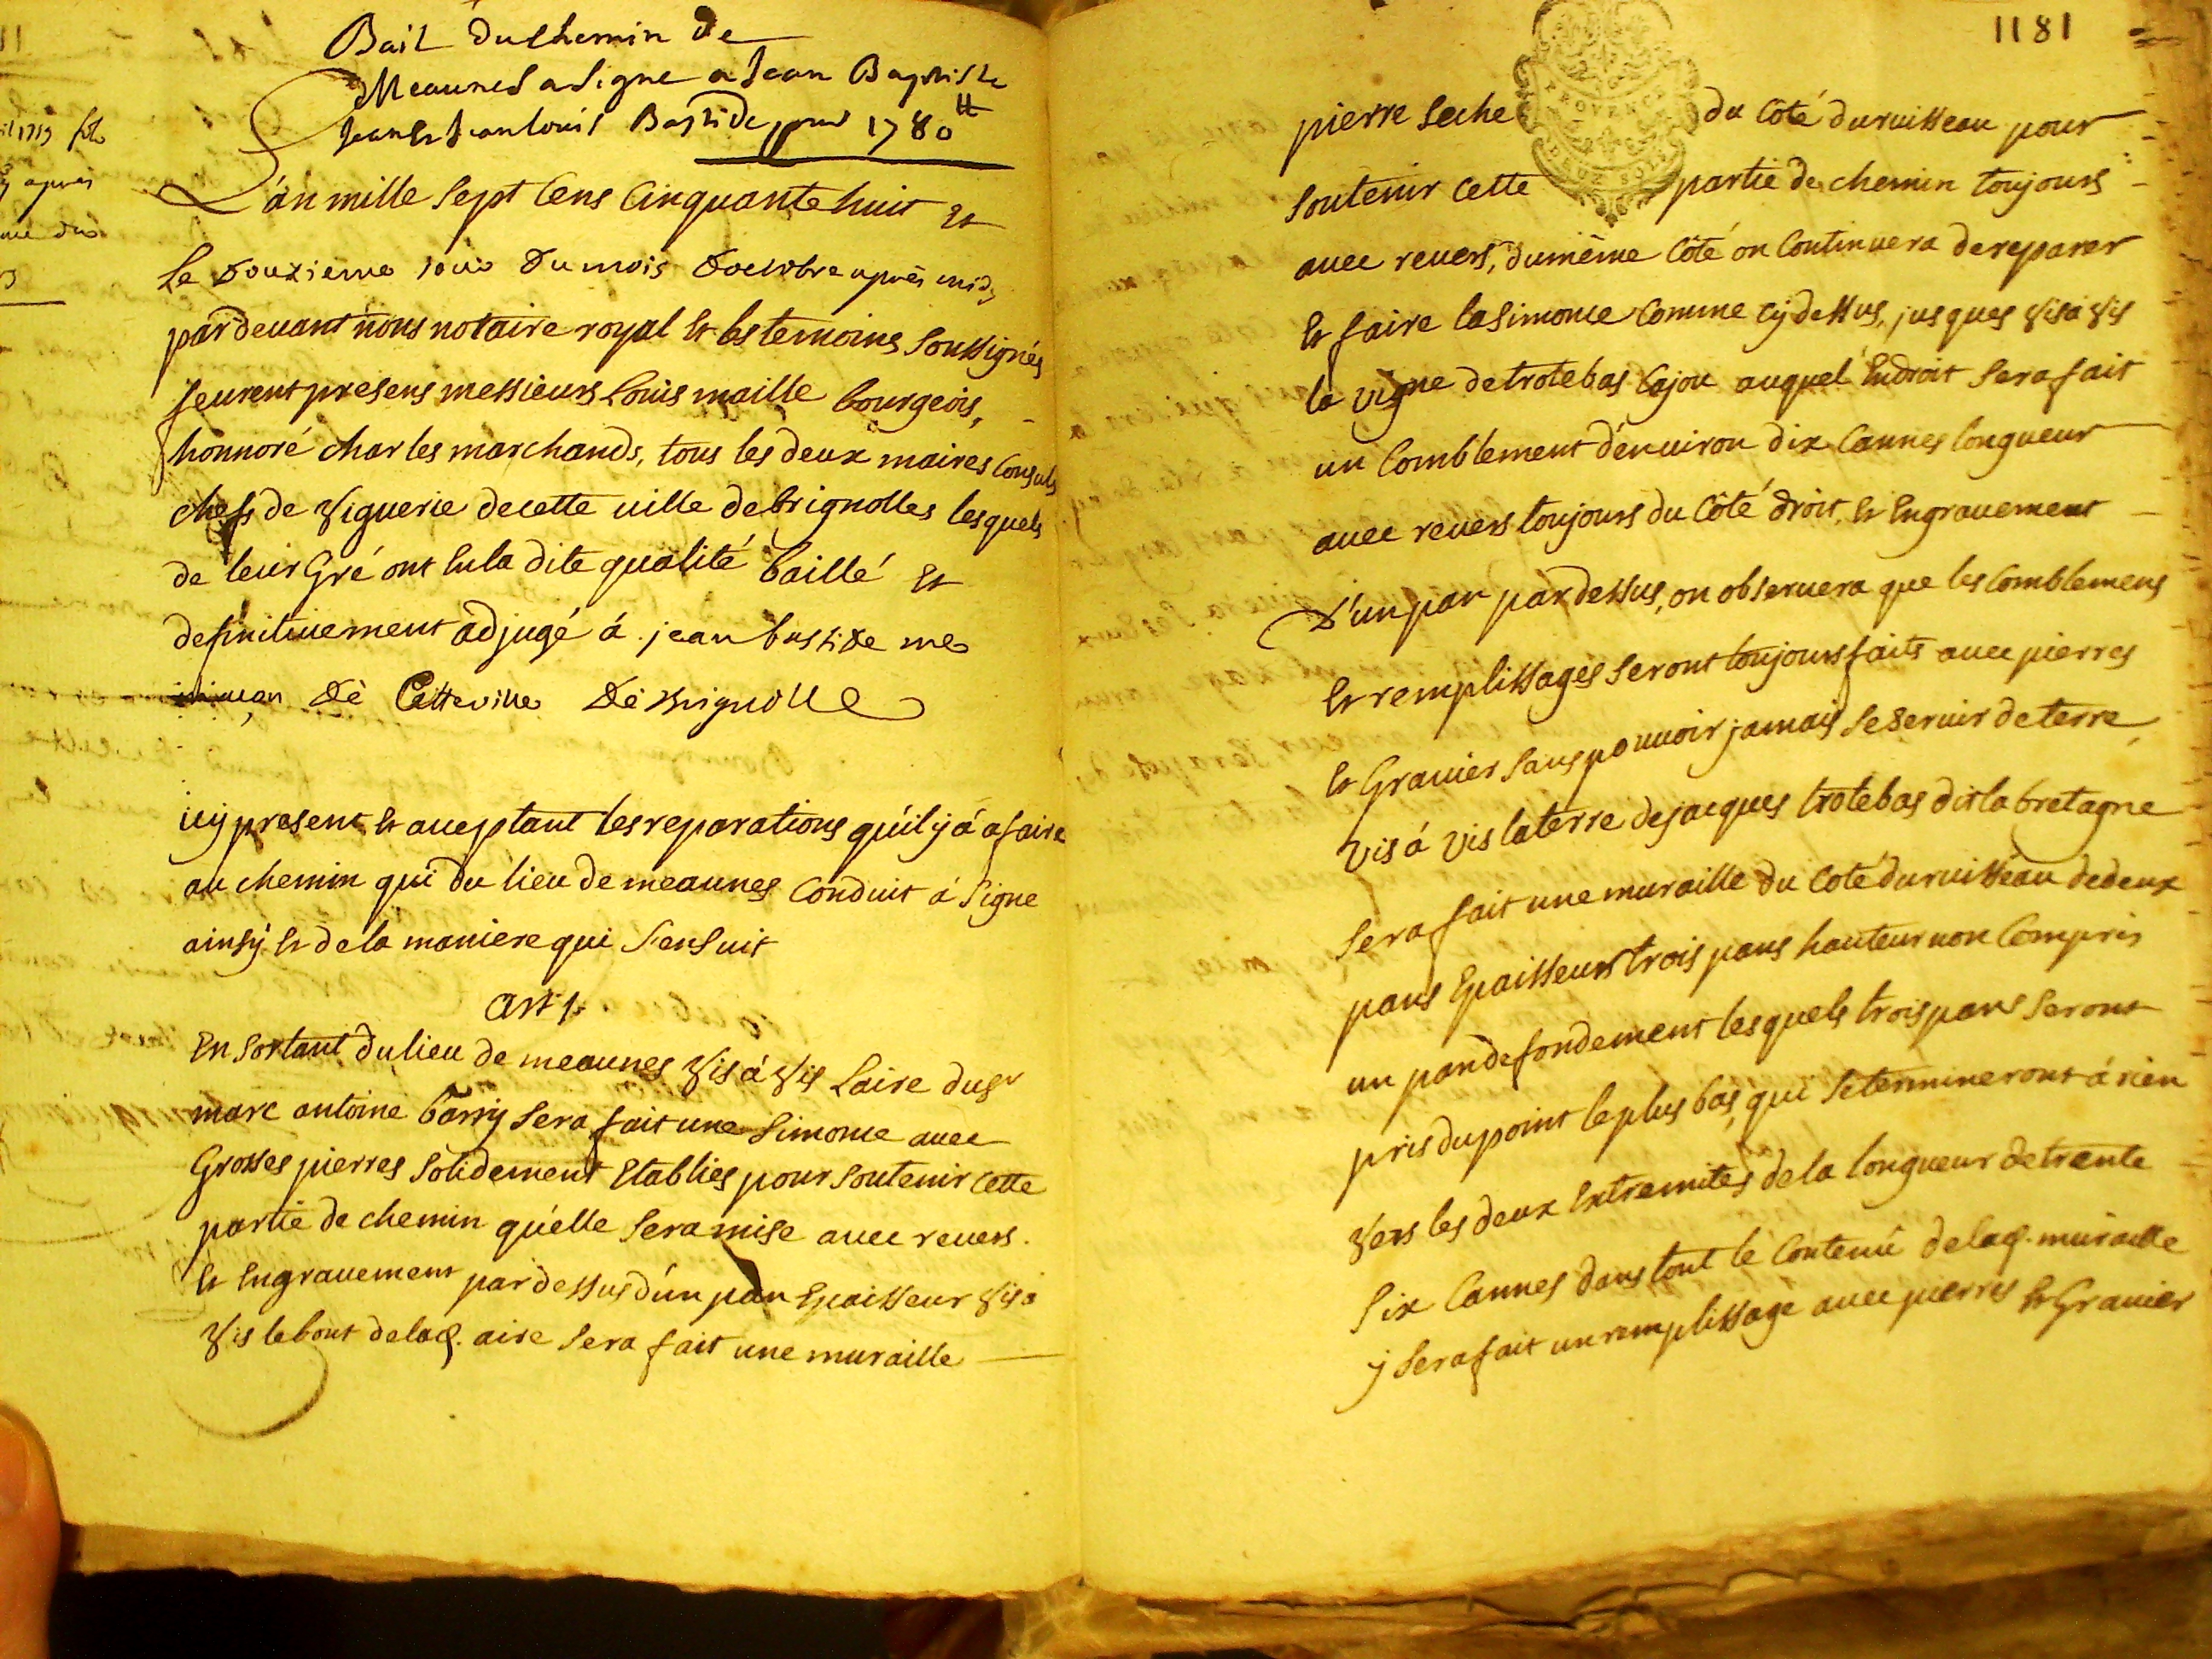 Bail du chemin de
Meaunes a Signe a Jean Baptiste
Jean & Jean louis Bastide pour 1780 tt
L'an mille sept cens cinquante huit et
le douzieme jour du mois d'octobre après midy
pardevant nous notaire royal et les temoins soussignés
feurent presens messieurs Louis maille bourgeois,
honnoré charles marchands, tous les deux maires consuls
chefs de viguerie de cette ville de brignolles lesquels
de leur Gré ont en la dite qualité baillé et
definitivement adjugé á jean bastide me
maçon de Cette ville de brignolle
icy present et acceptant les reparations qu'il y á a faire
au chemin qui du lieu de meaunes conduit á Signe
ainsy et de la maniere qui s'ensuit
Art 1.
En sortant du lieu de meaunes vis á vis Laire du sr
marc antoine barry sera fait une simouce avec
Grosses pierres solidement Etablies pour soutenir cette
partie de chemin qu'elle sera mise avec revers.
et Engravement par dessus d'un pan Epaisseur vis á
vis le bout de lad. aire sera fait une muraille
1181
pierre seche du côté du ruisseau pour
soutenir cette partie de chemin toujours
avec revers, du même côté on continuera de reparer
et faire la simouce comme cy dessus, jusques vis á vis
la vigne de trotebas Cajou auquel Endroit sera fait
un comblement d'environ dix cannes longueur
avec revers toujours du côté droit, et Engravement
d'un pan par dessus, on observera que les comblemens
et remplissages seront toujours faits avec pierres
et Gravier sans pouvoir jamais se servir de terre,
vis á vis la terre de jacques trotebas dit la bretagne
sera fait une muraille du coté du ruisseau de deux
pans Epaisseur trois pans hauteur non compris
un pan de fondement lesquels trois pans seront
pris du point le plus bas, qui se termineront á rien
vers les deux Extremités de la longueur de trente
six cannes dans tout le contenu de lad. muraille
y sera fait un remplissage avec pierres et Gravier